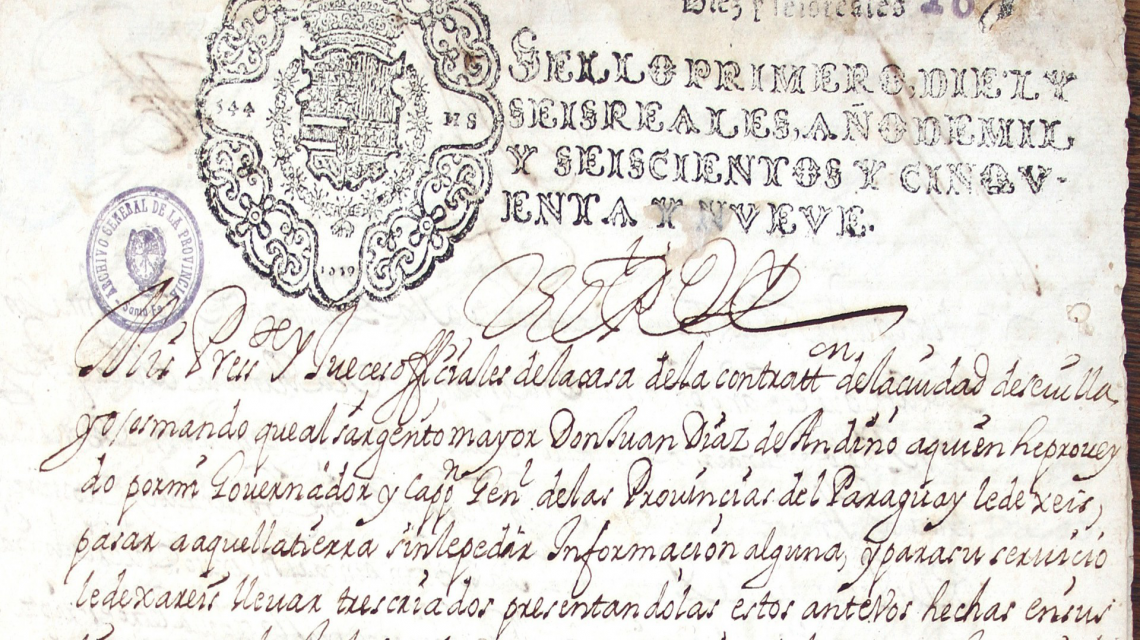 Diez y seis reales 16
SELLO PRIMERO, DIEZ Y
SEIS REALES, AÑO DE MIL
Y SEISCIENTOS Y CINQV-
ENTA Y NVEVE.
ARCHIVO GENERAL DE LA PROVINCIA
Santa Fe
1659
El Rey
Mis Press y Jueces officiales de la casa de la contrattcn de la ciudad de sevilla,
yo os mando que al sargento mayor Don Juan Diaz de Andino a quien he provey
do por mi Governador y Capp.n Gen.l de las Provincias del Paraguay le dexeis,
pasar a aquella tierra sin le pedir Informacion alguna, y para su servicio
le dexareis llevar tres criados presentandolas estos ante Vos hechas en sus